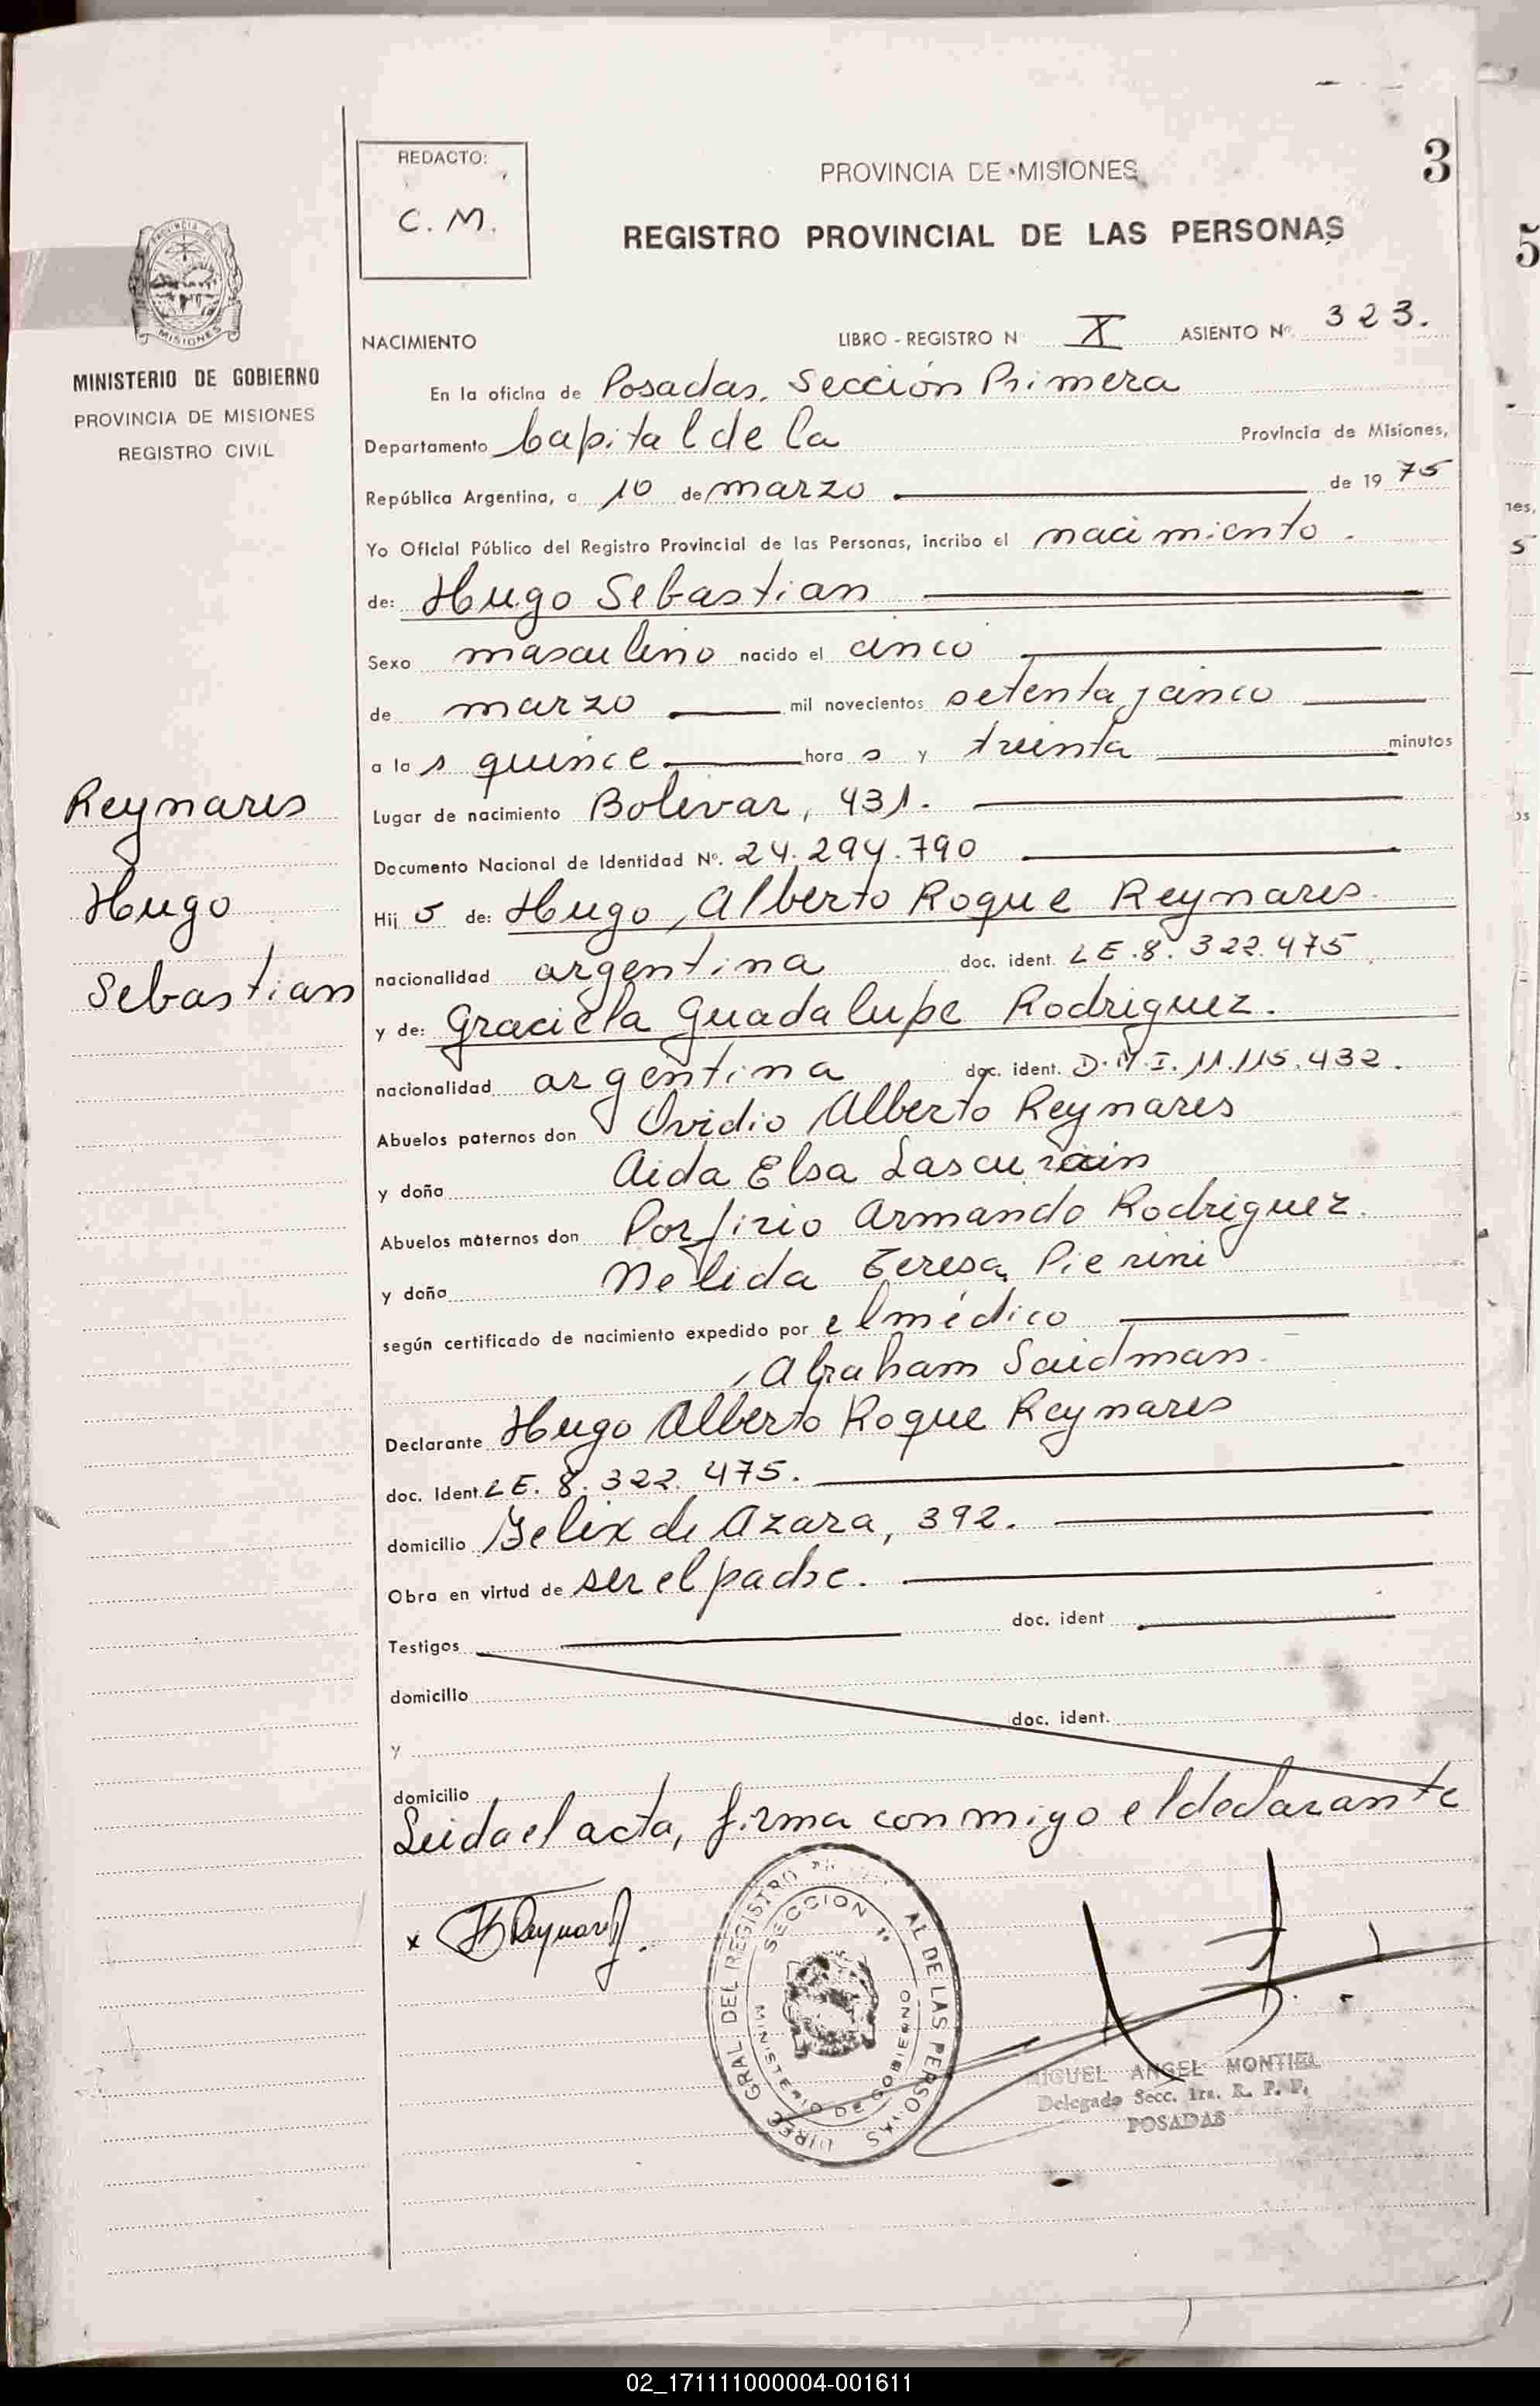 3
REDACTO:
C. M.
PROVINCIA DE MISIONES
REGISTRO PROVINCIAL DE LAS PERSONAS
PROVINCIA DE
MISIONES
MINISTERIO DE GOBIERNO
PROVINCIA DE MISIONES
REGISTRO CIVIL
NACIMIENTO LIBRO - REGISTRO N X ASIENTO Nº 323.
En la oficina de Posadas, Sección Primera
Departamento Capital de la Provincia de Misiones,
República Argentina, a 10 de marzo de 19 75
Yo Oficial Público del Registro Provincial de las Personas, incribo el nacimiento.
de: Hugo Sebastian
Sexo masculino nacido el cinco
de marzo mil novecientos setenta y cinco
a la s quince hora s y treinta minutos
Lugar de nacimiento Bolivar, 431.
Documento Nacional de Identidad Nº. 24.294.790
Hij o de: Hugo Alberto Roque Reynares
nacionalidad argentina doc. ident. LE.8.322.475
y de: Graciela Guadalupe Rodriguez.
nacionalidad argentina doc. ident. D.N.I. 11.115.432.
Abuelos paternos don Ovidio Alberto Reynares
y doña Aida Elsa Lascurain
Abuelos maternos don Porfirio Armando Rodriguez.
y doña Nelida Teresa Pierini
según certificado de nacimiento expedido por el médico
Abraham Saidman.
Declarante Hugo Alberto Roque Reynares
doc. Ident. LE. 8.322.475.
domicilio Felix de Azara, 392.
Obra en virtud de ser el padre.
Testigos doc. ident
domicilio
y doc. ident.
domicilio
Leida el acta, firma conmigo el declarante
Reynares
Hugo
Sebastian
x Reynares
DIREC GRAL DEL REGISTRO AL DE LAS PERSONAS
SECCION 1ª
MINISTERIO DE GOBIERNO
MIGUEL ANGEL MONTIEL
Delegado Secc. 1ra. R. P. P.
POSADAS
5
nes,
5
os
02_171111000004-001611